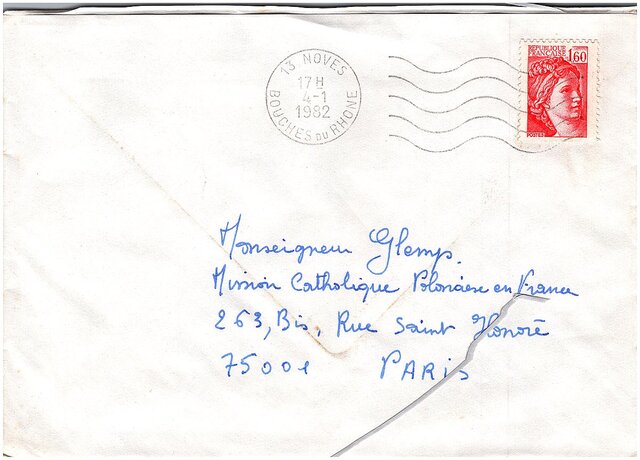 13 NOVES
17 H
4-1
1982
BOUCHES DU RHONE
REPUBLIQUE
FRANCAISE 1,60
POSTES
Monseigneur Glemp.
Mission Catholique Polonaise en France
263, Bis, Rue Saint Honoré
75001 PARIS